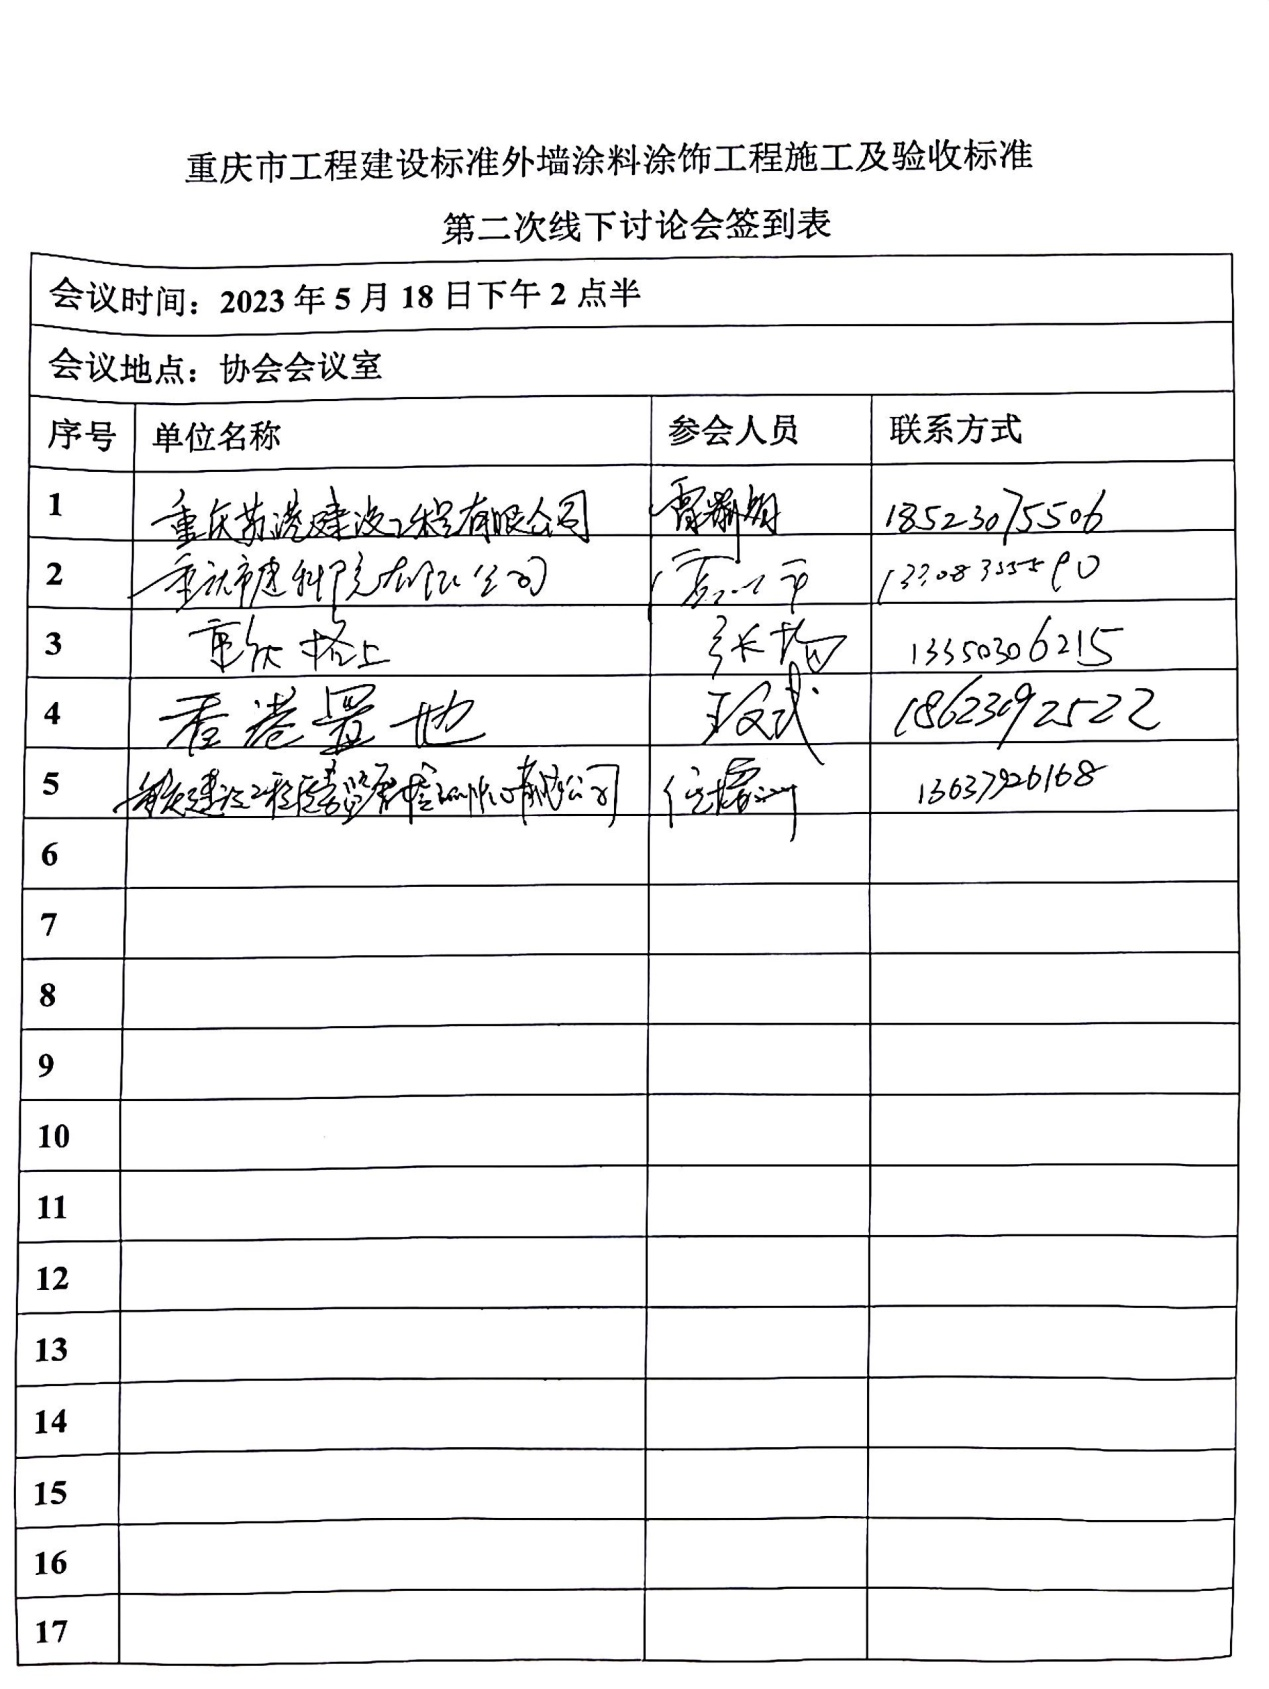 重庆市工程建设标准外墙涂料涂饰工程施工及验收标准
第二次线下讨论会签到表
会议时间：2023年5月18日下午2点半
会议地点：协会会议室
序号 单位名称 参会人员 联系方式
1 重庆苏港建设工程有限公司 18523075506
2 重庆市建科院有限公司
3 重庆 张 13350306215
4 香港置地 18623092522
5 有限公司 任 13637926168
6
7
8
9
10
11
12
13
14
15
16
17